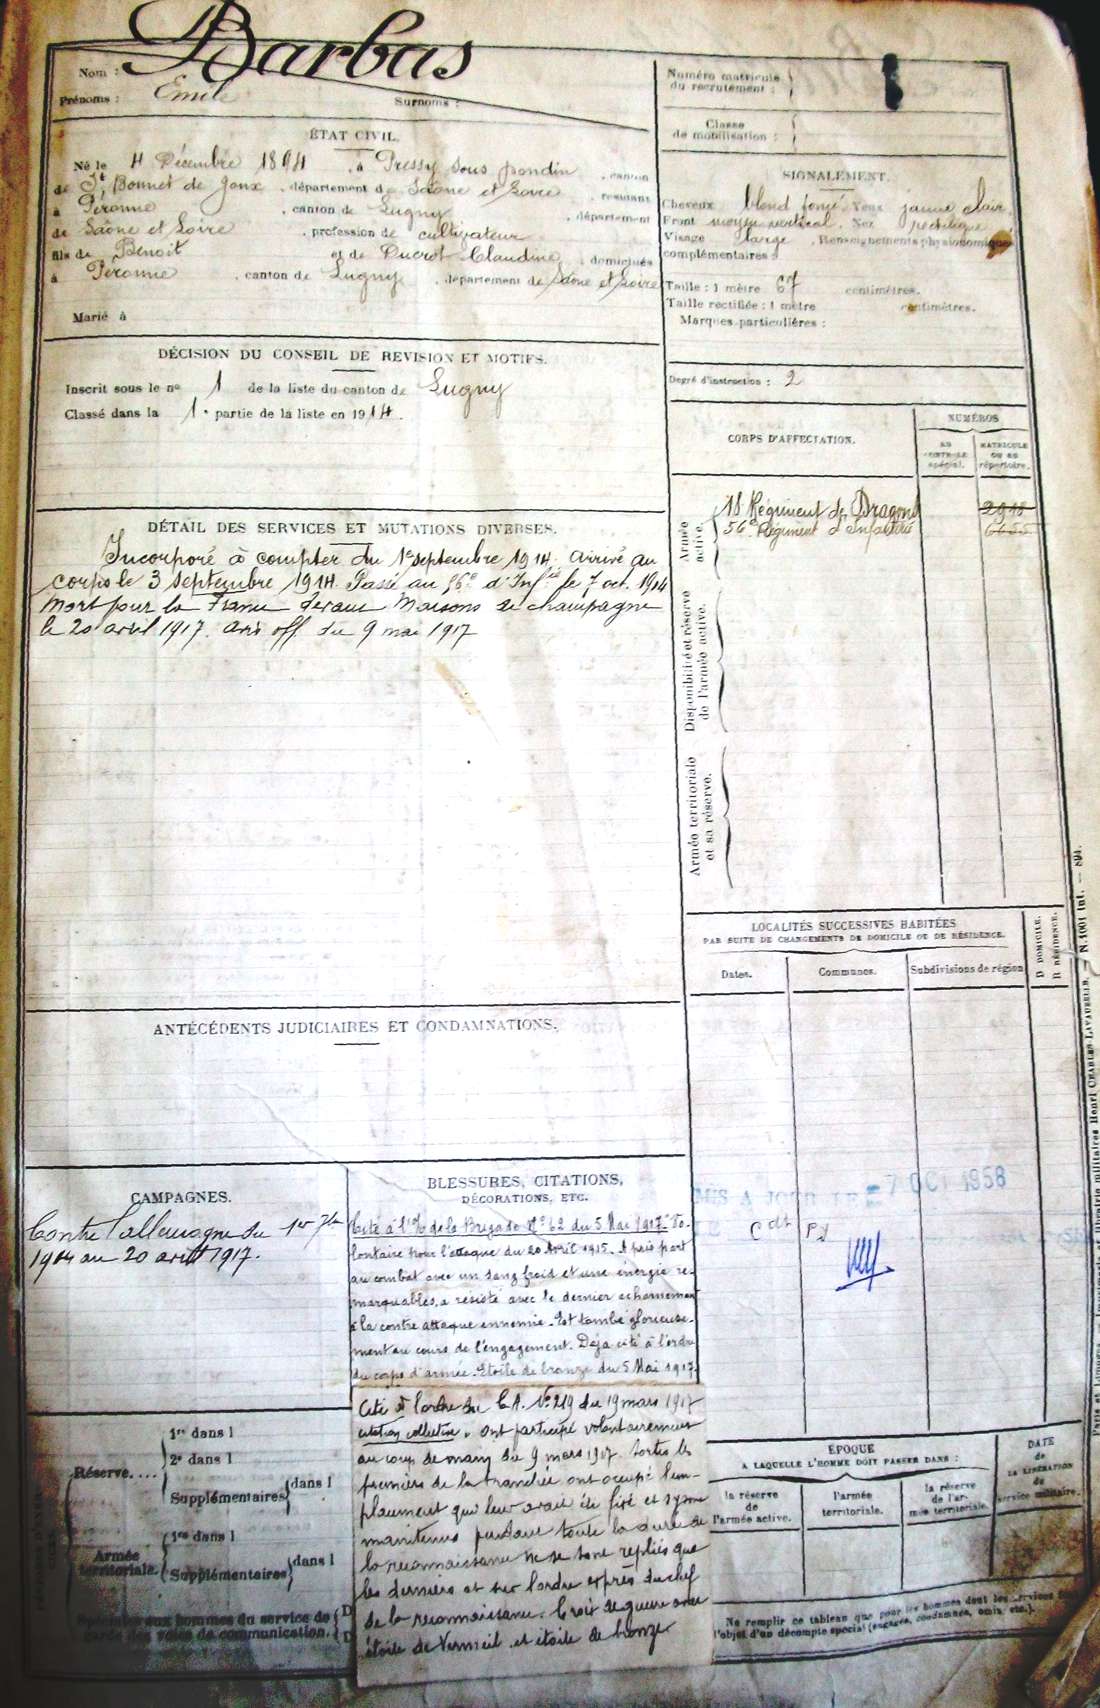 Barbas
Nom :
Prénoms : Emile Surnoms :
ÉTAT CIVIL.
Né le 4 Décembre 1894, à Pressy sous Dondin, canton
de St Bonnet de Joux, département de Saône et Loire, résidant
à Péronne, canton de Lugny, département
de Saône et Loire, profession de cultivateur
fils de Benoit et de Ducrot Claudine, domiciliés
à Péronne, canton de Lugny, département de Saône et Loire
Marié à
DÉCISION DU CONSEIL DE REVISION ET MOTIFS.
Inscrit sous le no 1 de la liste du canton de Lugny
Classé dans la 1e partie de la liste en 1914.
DÉTAIL DES SERVICES ET MUTATIONS DIVERSES.
Incorporé à compter du 1er septembre 1914. Arrivé au
corps le 3 septembre 1914. Passé au 56e d'Infie le 7 oct. 1914
Mort pour la France devant Maisons de Champagne
le 20 avril 1917. avis off. du 9 mai 1917
ANTÉCÉDENTS JUDICIAIRES ET CONDAMNATIONS.
CAMPAGNES.
Contre l'allemagne du 1er 7bre
1914 au 20 avril 1917.
BLESSURES, CITATIONS,
DÉCORATIONS, ETC.
Cité à l'O/ de la Brigade No 62 du 5 Mai 1917. Vo-
lontaire pour l'attaque du 20 Avril 1915. A pris part
au combat avec un sang froid et une énergie re-
marquables, a résisté avec le dernier acharnement
à la contre attaque ennemie. Est tombé glorieuse-
ment au cours de l'engagement. Déjà cité à l'ordre
du corps d'armée. Etoile de bronze du 5 Mai 1917.
Cité à l'ordre du C.A. No 219 du 19 mars 1917
citation collective. Ont participé volontairement
au coup de main du 9 mars 1917. Sortis les
premiers de la tranchée ont occupé l'em-
placement qui leur avait été fixé et s'y sont
maintenus pendant toute la durée de
la reconnaissance ne se sont repliés que
les derniers et sur l'ordre exprès du chef
de la reconnaissance. Croix de guerre avec
étoile de Vermeil et étoile de bronze
Réserve....
1re dans l
2e dans l
Supplémentaires dans l
Armée
territoriale.
1re dans l
Supplémentaires dans l
Spéciales aux hommes du service de
garde des voies de communication.
Numéro matricule
du recrutement :
Classe
de mobilisation :
SIGNALEMENT.
Cheveux blond foncé Yeux jaune clair
Front moyen vertical. Nez rectiligne
Visage large. Renseignements physionomiques
complémentaires :
Taille : 1 mètre 67 centimètres.
Taille rectifiée : 1 mètre centimètres.
Marques particulières :
Degré d'instruction : 2
CORPS D'AFFECTATION.
NUMÉROS
AU
CONTROLE
spécial.
MATRICULE
OU AU
répertoire.
Armée
active.
18 Régiment de Dragons
56e Régiment d'Infanterie
Disponibilité et réserve
de l'armée active.
Armée territoriale
et sa réserve.
LOCALITÉS SUCCESSIVES HABITÉES
PAR SUITE DE CHANGEMENTS DE DOMICILE OU DE RÉSIDENCE.
Dates.
Communes.
Subdivisions de région
D DOMICILE.
R RÉSIDENCE.
MIS A JOUR LE 7 OCT 1958
ÉPOQUE
A LAQUELLE L'HOMME DOIT PASSER DANS :
la réserve
de
l'armée active.
l'armée
territoriale.
la réserve
de l'ar-
mée territoriale.
DATE
de
LA LIBÉRATION
du
service militaire.
Ne remplir ce tableau que pour les hommes dont les services
l'objet d'un décompte spécial (engagés, condamnés, omis, etc.).
Henri CHARLES-LAVAUZELLE. — N. 1001 Int. — 894.